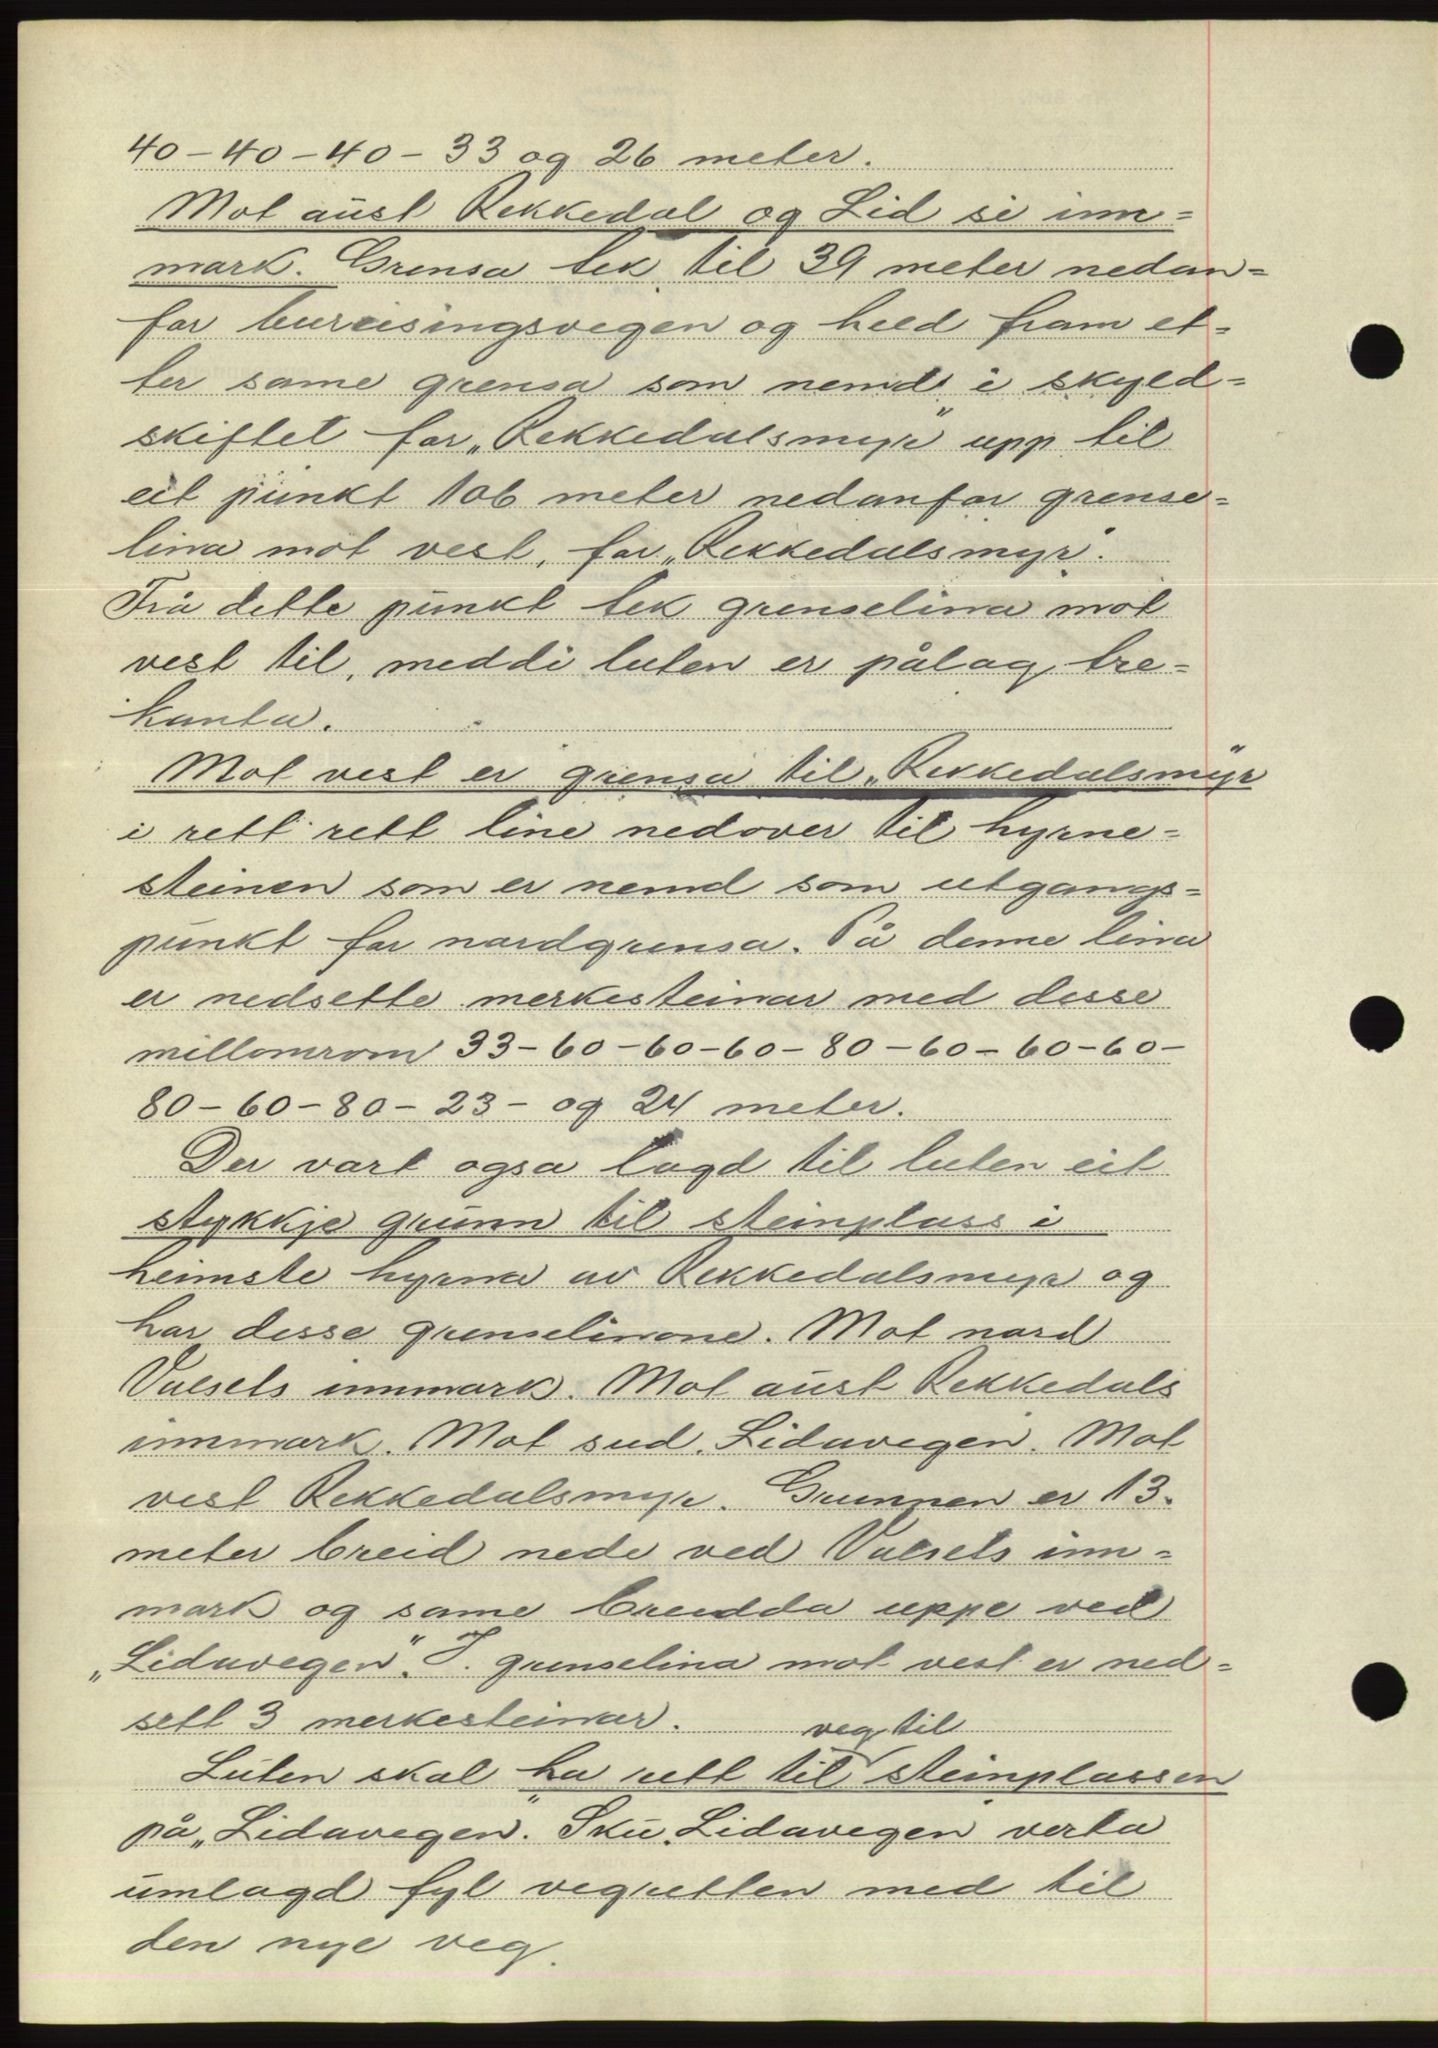 40 - 40 - 40 - 33 og 26 meter.
Mot aust Rekkedal og Lid si inn=
mark. Grensa tek til 39 meter nedan=
for bureisingsvegen og held fram et=
ter same grensa som nemd i skyld=
skiftet for „Rekkedalsmyr" upp til
eit punkt 106 meter nedanfor grense=
lina mot vest, for „Rekkedalsmyr".
Frå dette punkt tek grenselina mot
vest til, meddi luten er pålag tre=
kanta.
Mot vest er grensa til „Rekkedalsmyr"
i rett rett line nedover til hyrne=
steinen som er nemd som utgangs=
punkt for nordgrensa. På denne lina
er nedsette merkesteinar med desse
millomrom 33 - 60 - 60 - 60 - 80 - 60 - 60 - 60 -
80 - 60 - 80 - 23 - og 24 meter.
Der vart ogsa lagd til luten eit
stykkje grunn til steinplass i
heimste hyrna av Rekkedalsmyr og
har desse grenselinone. Mot nord
Valsets innmark. Mot aust Rekkedals
innmark. Mot sud. Lidavegen. Mot
vest Rekkedalsmyr. Grunnen er 13.
meter breid nede ved Valsets inn=
mark og same breidda uppe ved
„Lidavegen". I. grenselina mot vest er ned=
sett 3 merkesteinar.
veg til
Luten skal ha rett til steinplassen
på „Lidavegen". Sku „Lidavegen verta
umlagd fyl vegretten med til
den nye veg.